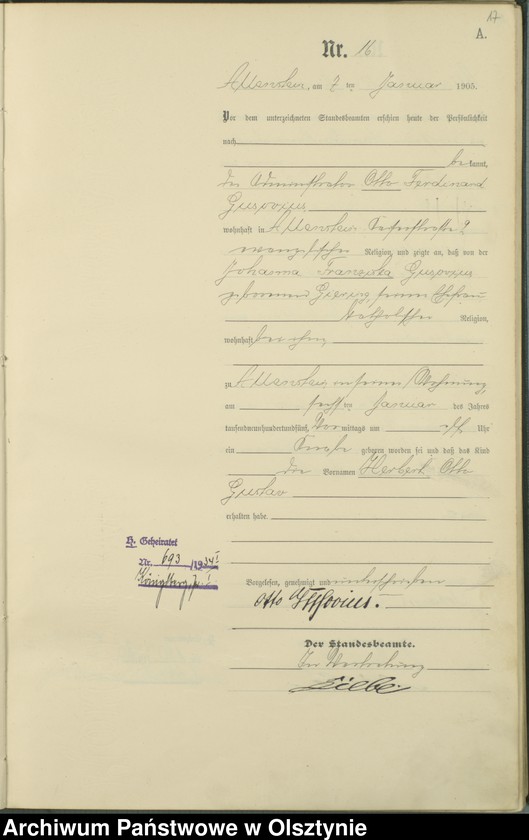 17
A.
Nr. 16
Allenstein, am 7 ten Januar 1905.
Vor dem unterzeichneten Standesbeamten erschien heute der Persönlichkeit
nach
bekannt,
der Administrator Otto Ferdinand
Gusovius
wohnhaft in Allenstein 2
evangelischer Religion, und zeigte an, daß von der
Johanna Franziska Gusovius
geborenen seiner Ehefrau
katholischer Religion,
wohnhaft bei ihm
zu Allenstein in seiner Wohnung
am sechsten Januar des Jahres
tausendneunhundertfünf, Vormittags um elf Uhr
ein Knabe geboren worden sei und daß das Kind
die Vornamen Herbert Otto
Gustav
erhalten habe.
H. Geheiratet
Nr. 693 /1934 I
Königsberg Pr. I
Vorgelesen, genehmigt und unterschrieben
Otto Gusovius.
Der Standesbeamte.
In Vertretung
Archiwum Państwowe w Olsztynie